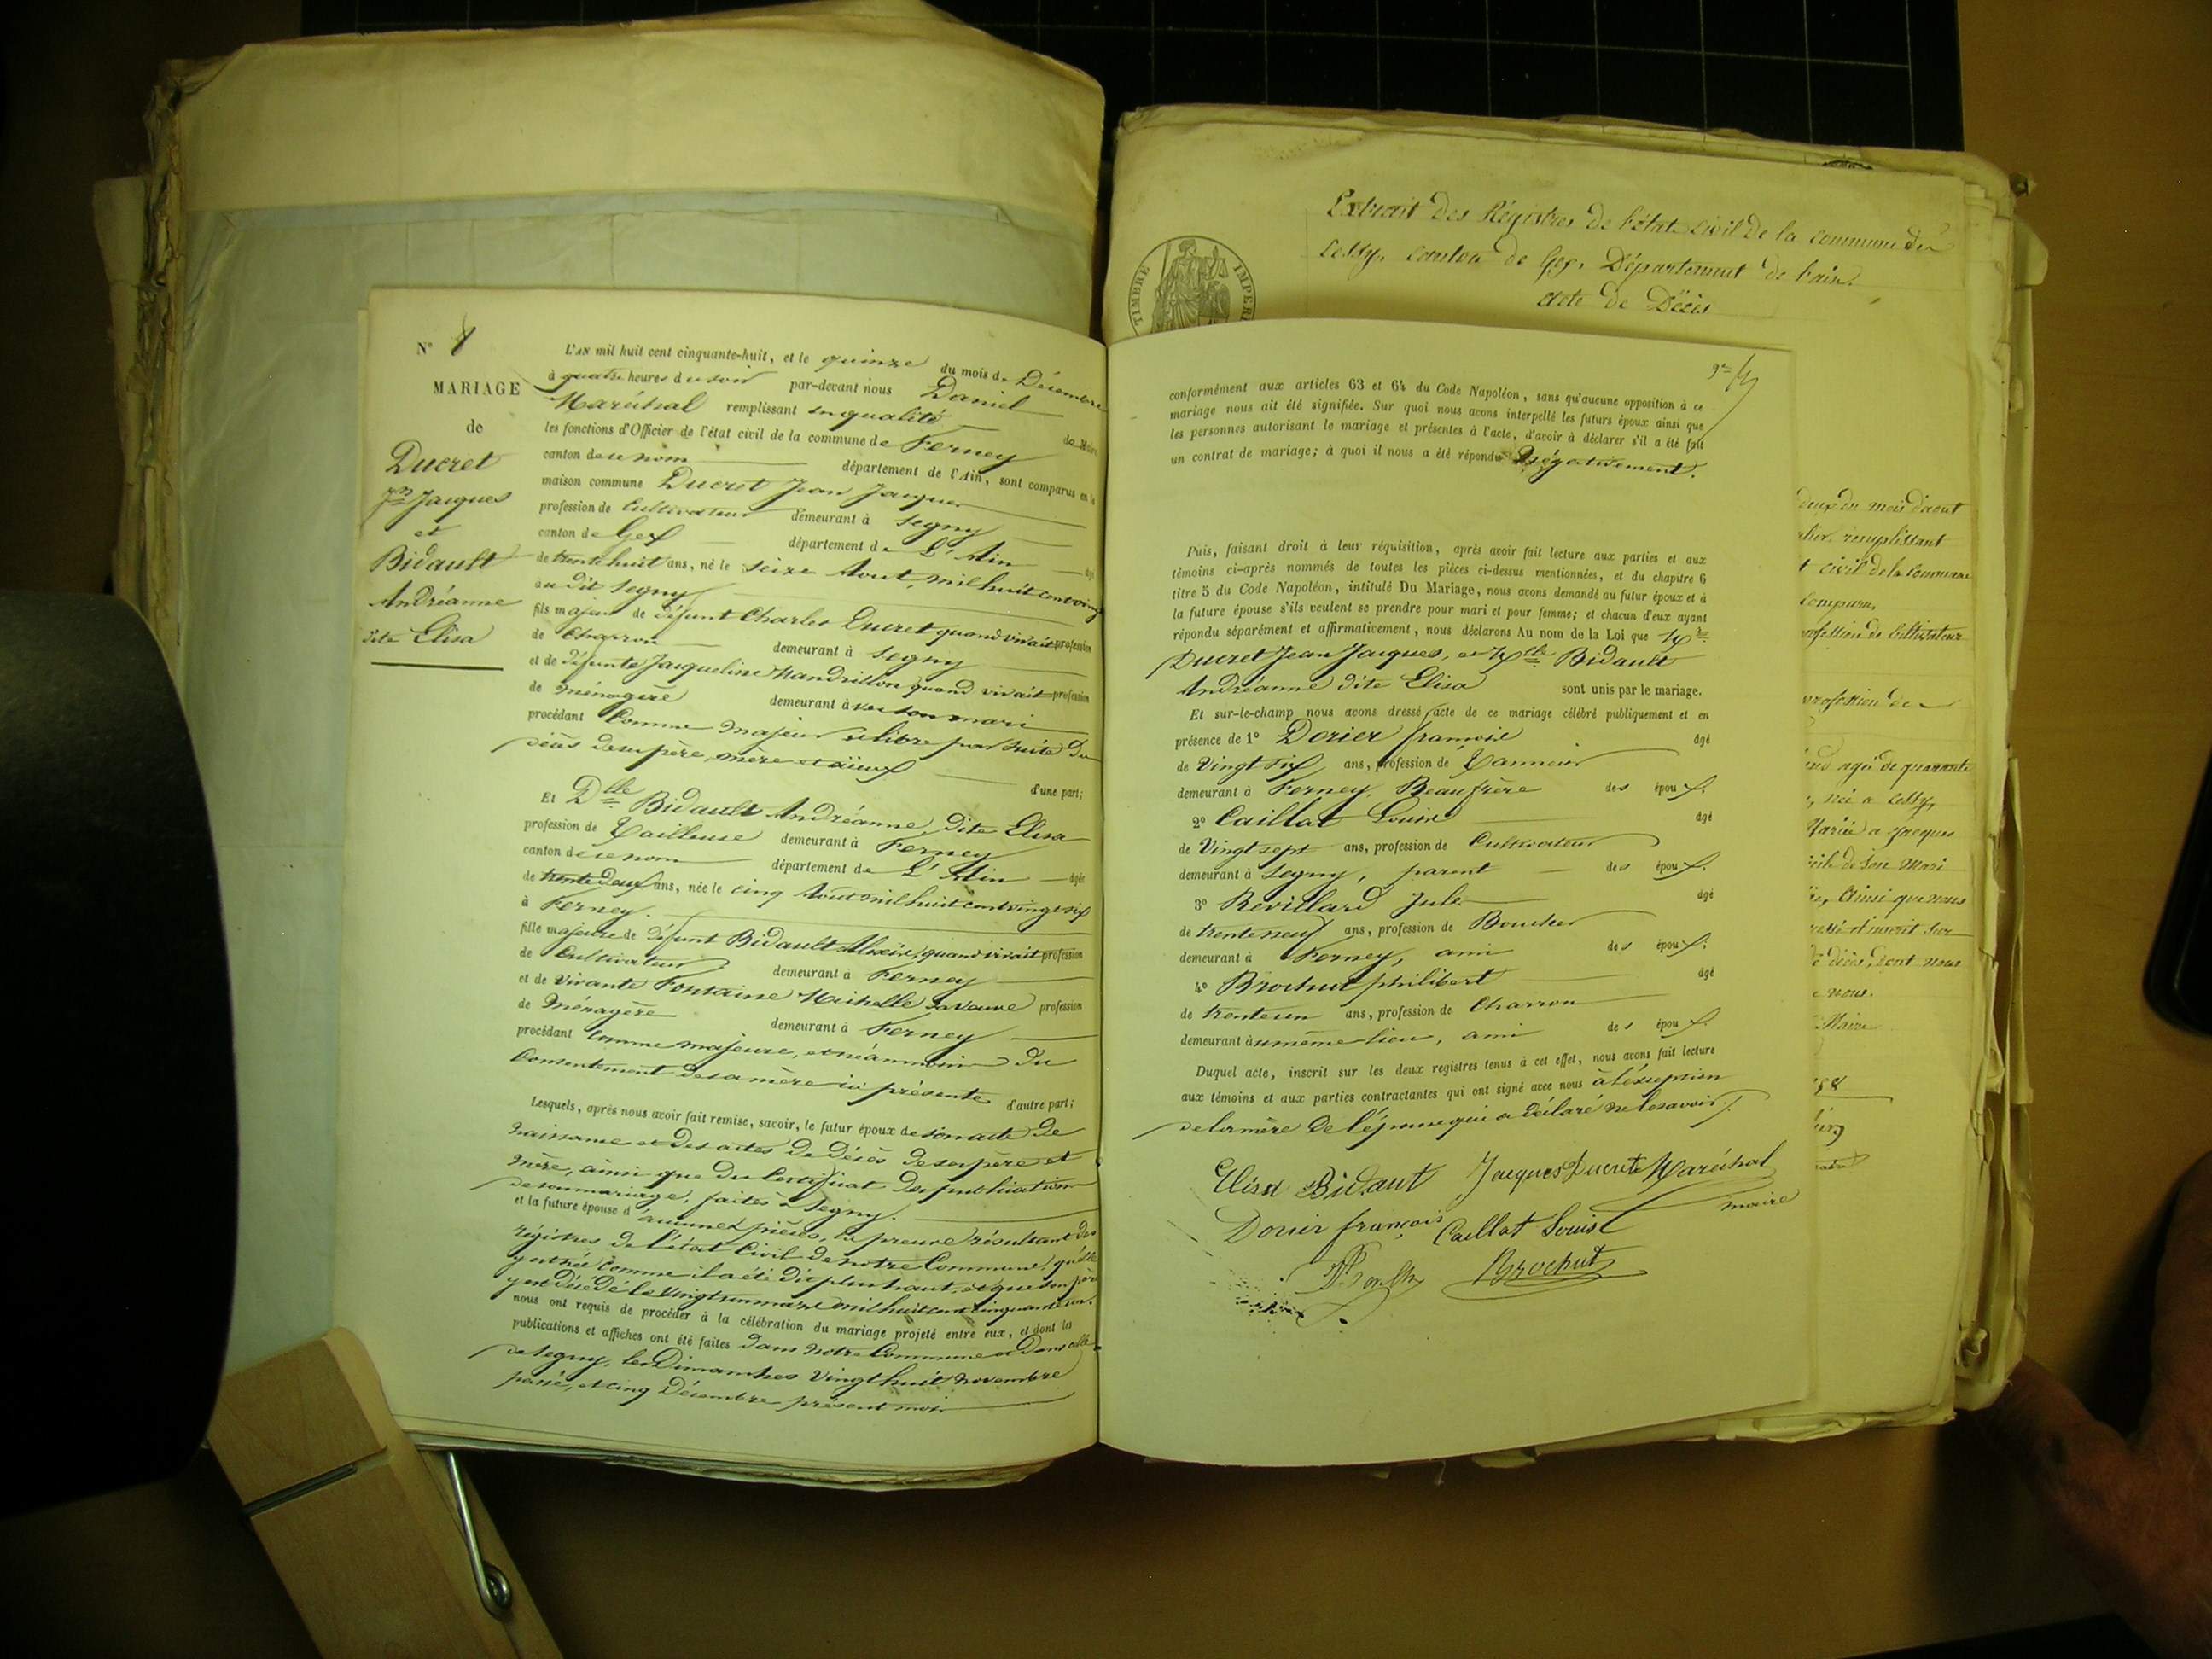 N° 8
MARIAGE
de
Ducret
Jn Jacques
et
Bidault
Andréanne
dite Elisa
L'AN mil huit cent cinquante-huit, et le quinze du mois de Décembre
à quatre heures du soir par-devant nous Daniel
Maréchal remplissant en qualité de Maire
les fonctions d'Officier de l'état civil de la commune de Ferney
canton de ce nom département de l'Ain, sont comparus en la
maison commune Ducret Jean Jacques
profession de Cultivateur demeurant à Segny
canton de Gex département de L'Ain âgé
de trente huit ans, né le seize Aout, mil huit cent vingt
au dit Segny
fils majeur de défunt Charles Ducret quand vivait profession
de Charron demeurant à Segny
et de défunte Jacqueline Mandrillon quand vivait profession
de Ménagère demeurant à vec son mari
procédant Comme majeur et libre par suite du
décès de ses père, mère et aïeux
d'une part;
Et Dlle Bidault Andréanne, dite Elisa
profession de Tailleuse demeurant à Ferney
canton de ce nom département de L'Ain âgée
de trente deux ans, née le cinq Aout mil huit cent vingt six
à Ferney.
fille majeure de défunt Bidault Alexis, quand vivait profession
de Cultivateur demeurant à Ferney
et de vivante Fontaine Michelle sa veuve profession
de Ménagère demeurant à Ferney
procédant Comme majeure, et néanmoins du
Consentement de sa mère ici présente d'autre part;
Lesquels, après nous avoir fait remise, savoir, le futur époux de son acte de
naissance et des actes de décès de ses père et
mère, ainsi que du Certificat des publications
de son mariage, faites à Segny.
et la future épouse d'aucunes pièces, la preuve résultant des
régistres de l'état Civil de notre Commune, qu'elle
y est née comme il a été dit plus haut, et que son père
y est décédé le vingt un mars mil huit cent cinquante un.
nous ont requis de procéder à la célébration du mariage projeté entre eux, et dont les
publications et affiches ont été faites dans notre Commune et dans celle
de Segny, les Dimanches vingt huit novembre
passé, et cinq Décembre présent mois
conformément aux articles 63 et 64 du Code Napoléon, sans qu'aucune opposition à ce
mariage nous ait été signifiée. Sur quoi nous avons interpellé les futurs époux ainsi que
les personnes autorisant le mariage et présentes à l'acte, d'avoir à déclarer s'il a été fait
un contrat de mariage; à quoi il nous a été répondu Négativement.
Puis, faisant droit à leur réquisition, après avoir fait lecture aux parties et aux
témoins ci-après nommés de toutes les pièces ci-dessus mentionnées, et du chapitre 6
titre 5 du Code Napoléon, intitulé Du Mariage, nous avons demandé au futur époux et à
la future épouse s'ils veulent se prendre pour mari et pour femme; et chacun d'eux ayant
répondu séparément et affirmativement, nous déclarons Au nom de la Loi que
Ducret Jean Jacques, et Bidault
Andréanne dite Elisa sont unis par le mariage.
Et sur-le-champ nous avons dressé acte de ce mariage célébré publiquement et en
présence de 1° Dorier françois âgé
de Vingt six ans, profession de Tanneur
demeurant à Ferney, Beaufrère des époux.
2° Caillat Louis âgé
de Vingt sept ans, profession de Cultivateur
demeurant à Segny, parent des époux.
3° Revillard Jule âgé
de trente neuf ans, profession de Boucher
demeurant à Ferney, ami des époux.
4° Brochut philibert âgé
de trente un ans, profession de Charron
demeurant au même lieu, ami des époux.
Duquel acte, inscrit sur les deux registres tenus à cet effet, nous avons fait lecture
aux témoins et aux parties contractantes qui ont signé avec nous à l'éxception
de la mère de l'épouse qui a déclaré ne le savoir.
Elisa Bidaut Jacques Ducret Maréchal
maire
Dorier françois Caillat Louis
Brochut
Extrait des Régistres de l'état civil de la commune de
Cessy, canton de Gex, Département de l'ain.
acte de Décès
TIMBRE IMPER
deux du mois d'aout
remplissant
civil de la Commune
Comparu,
profession de Cultivateur
profession de
agée de quarante
née a Cessy,
Mariée a Jacques
de son Mari
Ainsi que nous
inscrit sur
décès, dont nous
nous.
Maire